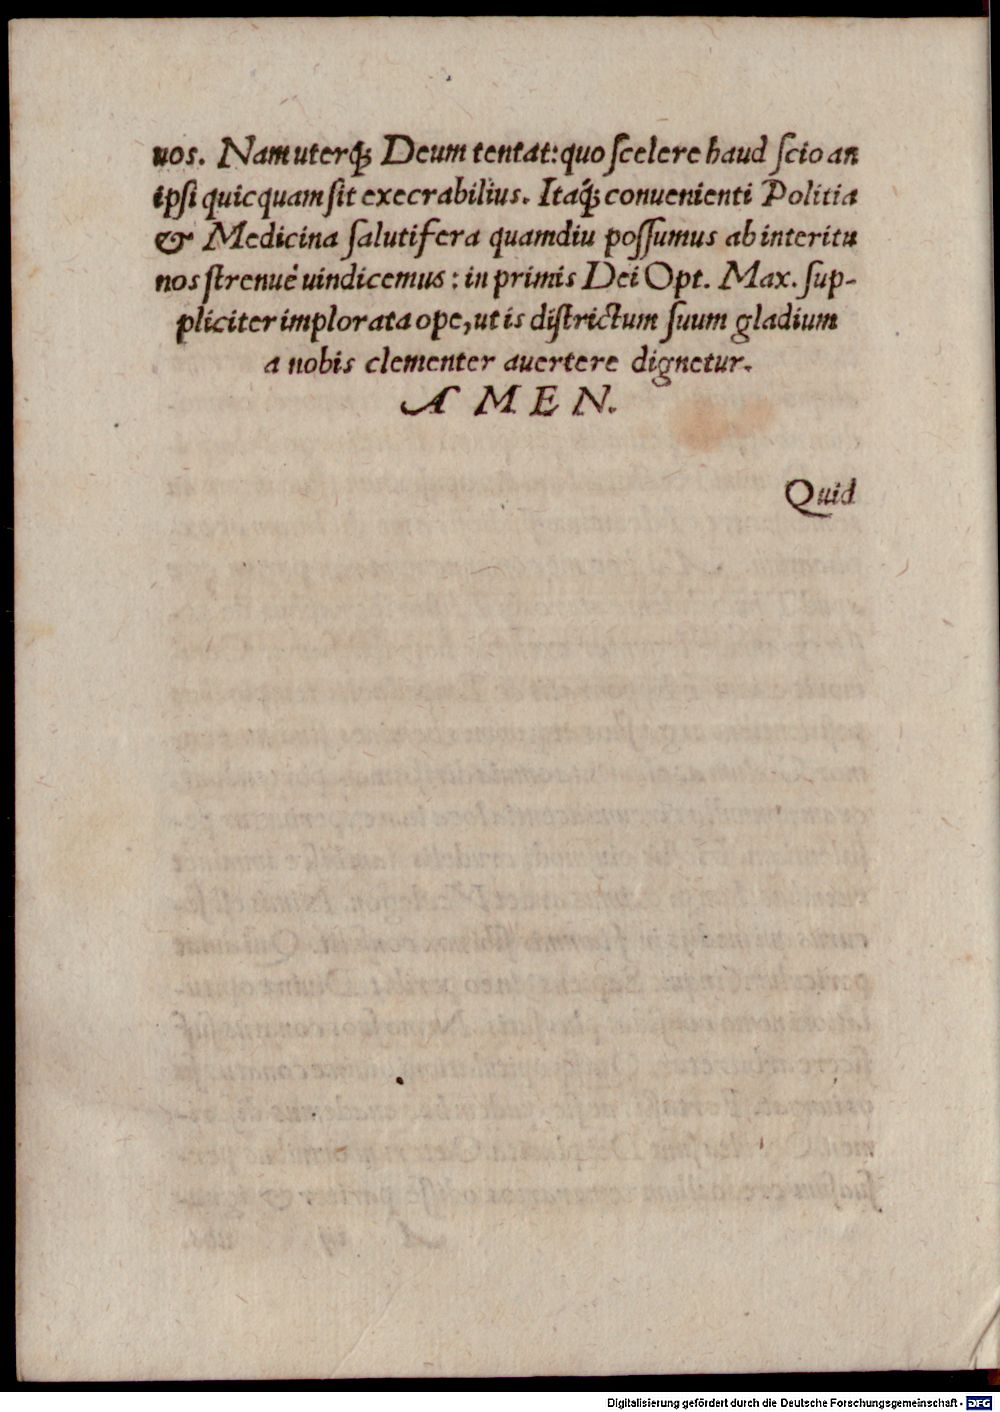 uos. Nam uterq́; Deum tentat: quo ſcelere haud ſcio an
ipſi quicquam ſit execrabilius. Itaq́; convenienti Politia
& Medicina ſalutifera quamdiu poſſumus ab interitu
nos ſtrenuè uindicemus: in primis Dei Opt. Max. ſup-
pliciter implorata ope, ut is diſtrictum ſuum gladium
a nobis clementer auertere dignetur.
A M E N.
Quid
Digitalisierung gefördert durch die Deutsche Forschungsgemeinschaft - DFG